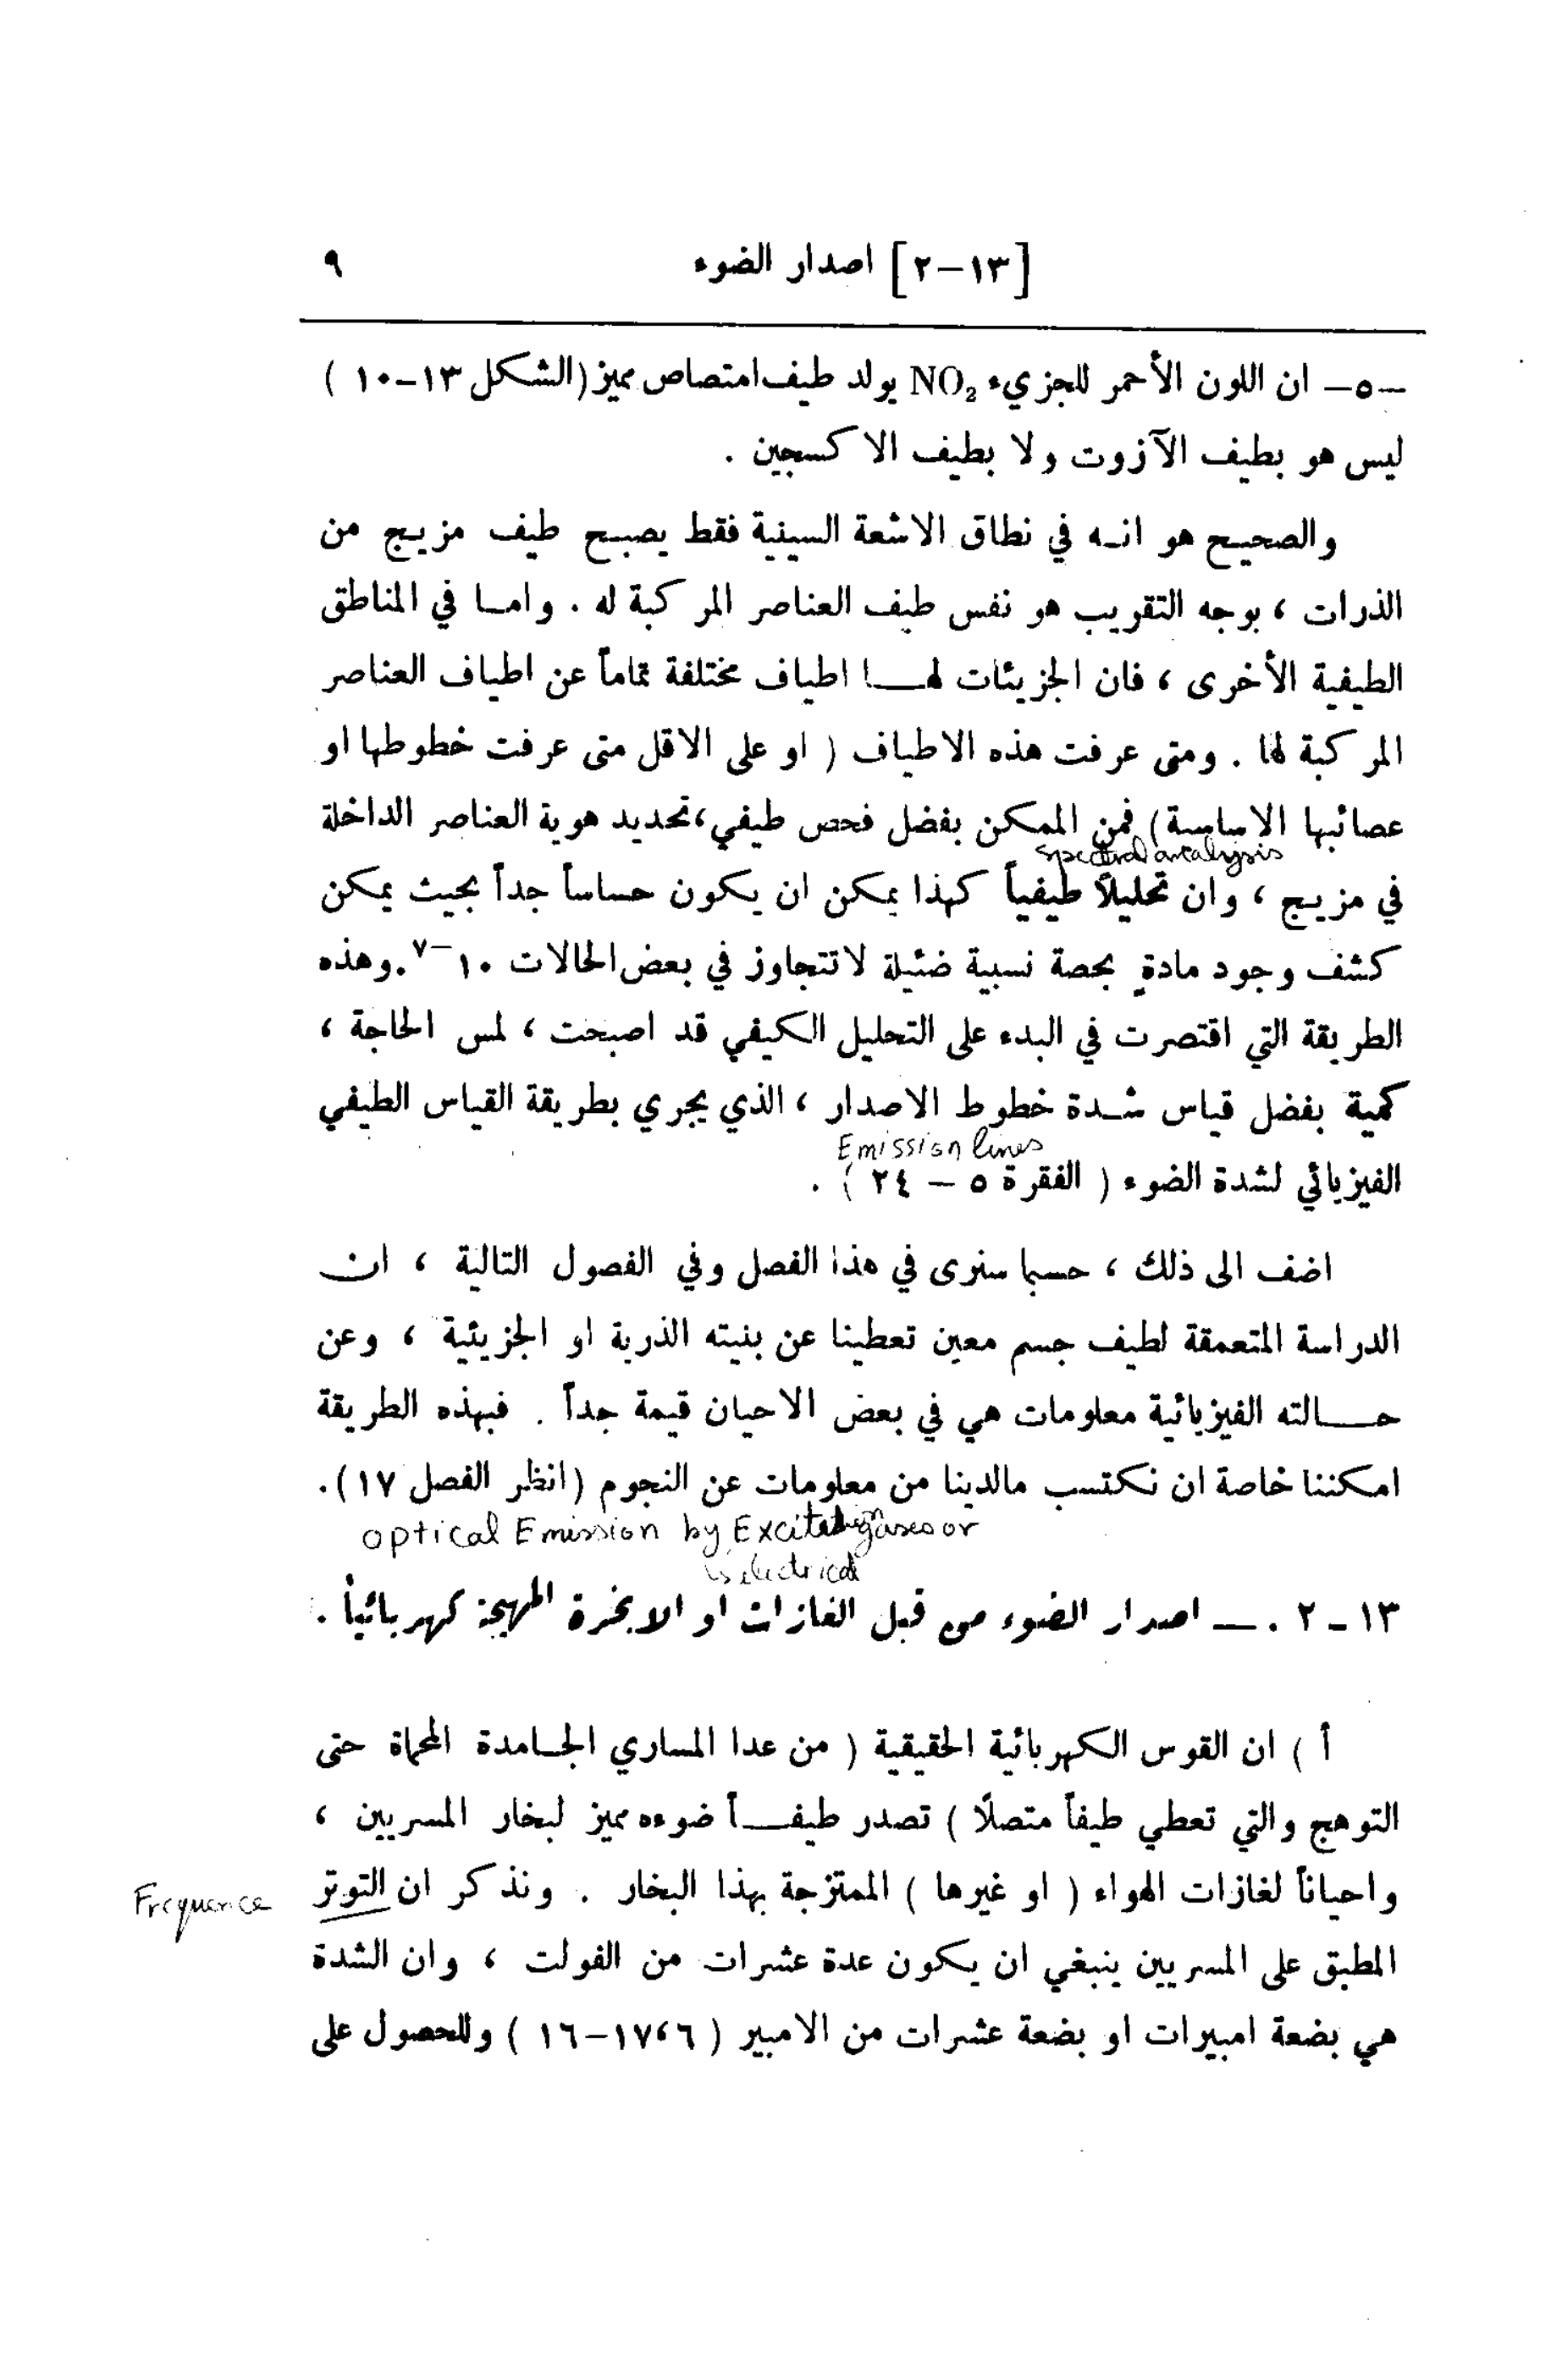 [١٣-٢] اصدار الضوء ٩
-٥- ان اللون الأحمر للجزيء NO₂ يولد طيف امتصاص مميز (الشكل ١٣-١٠ )
ليس هو بطيف الآزوت ولا بطيف الاكسجين .
والصحيح هو انه في نطاق الاشعة السينية فقط يصبح طيف مزيج من
الذرات ، بوجه التقريب هو نفس طيف العناصر المركبة له . واما في المناطق
الطيفية الأخرى ، فان الجزيئات لها اطياف مختلفة تماماً عن اطياف العناصر
المركبة لها . ومتى عرفت هذه الاطياف ( او على الاقل متى عرفت خطوطها او
عصائبها الاساسية ) فمن الممكن بفضل فحص طيفي ، تحديد هوية العناصر الداخلة
spectral analysis
في مزيج ، وان تحليلاً طيفياً كهذا يمكن ان يكون حساساً جداً بحيث يمكن
كشف وجود مادةٍ بحصة نسبية ضئيلة لا تتجاوز في بعض الحالات ١٠⁻٧ . وهذه
الطريقة التي اقتصرت في البدء على التحليل الكيفي قد اصبحت ، لمس الحاجة ،
كمية بفضل قياس شدة خطوط الاصدار ، الذي يجري بطريقة القياس الطيفي
Emission lines
الفيزيائي لشدة الضوء ( الفقرة ٥ – ٢٤ ) .
اضف الى ذلك ، حسبما سنرى في هذا الفصل وفي الفصول التالية ، ان
الدراسة المتعمقة لطيف جسم معين تعطينا عن بنيته الذرية او الجزيئية ، وعن
حالته الفيزيائية معلومات هي في بعض الاحيان قيمة جداً . فبهذه الطريقة
امكننا خاصة ان نكتسب مالدينا من معلومات عن النجوم (انظر الفصل ١٧ ) .
optical Emission by gases or
electrical
١٣-٢ . — اصدار الضوء من قبل الغازات او الابخرة المهيجة كهربائياً .
أ ) ان القوس الكهربائية الحقيقية ( من عدا المساري الجامدة المحماة حتى
التوهج والتي تعطي طيفاً متصلاً ) تصدر طيفاً ضوءه مميز لبخار المسريين ،
واحياناً لغازات الهواء ( او غيرها ) الممتزجة بهذا البخار . ونذكر ان التوتر
Frequence
المطبق على المسريين ينبغي ان يكون عدة عشرات من الفولت ، وان الشدة
هي بضعة امبيرات او بضعة عشرات من الامبير ( ٦،١٧-١٦ ) وللحصول على